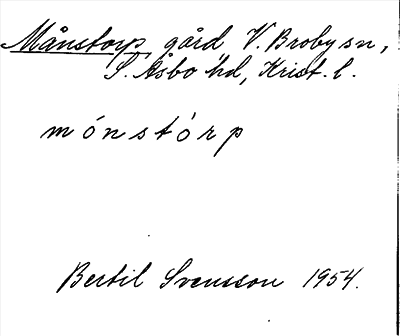 Månstorp, gård V. Broby sn,
S. Åsbo hd, Krist. l.
mónstórp
Bertil Svensson 1954.